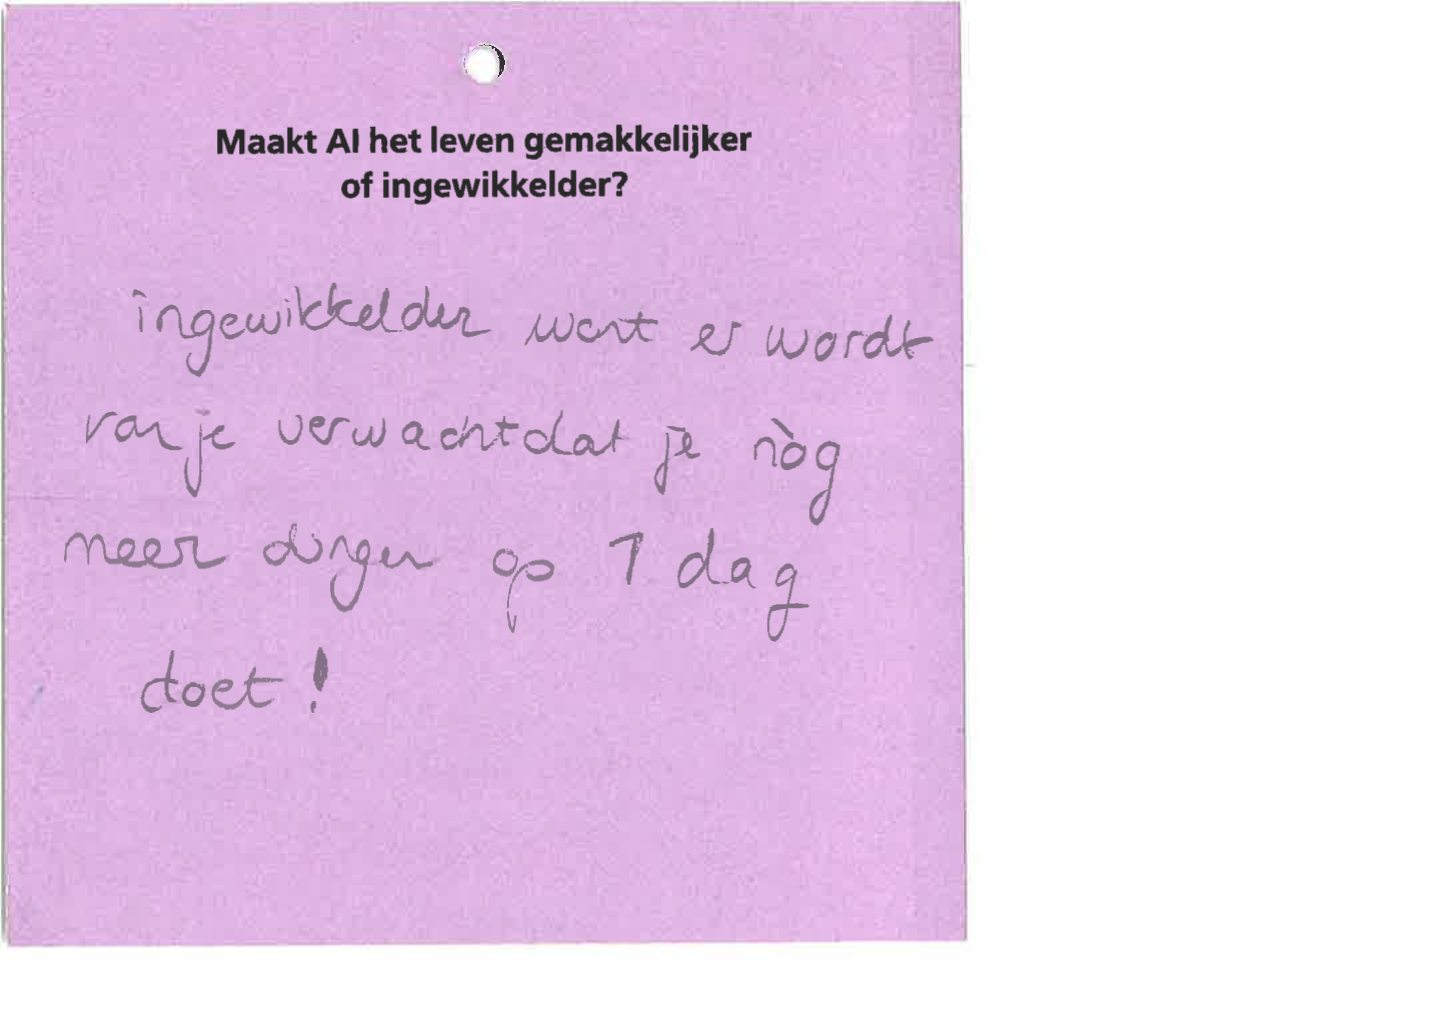 Maakt AI het leven gemakkelijker
of ingewikkelder?
ingewikkelder want er wordt
van je verwacht dat je nòg
meer dingen op 1 dag
doet!